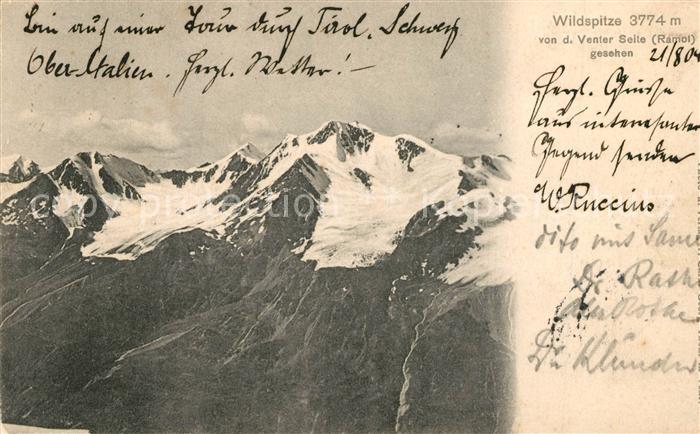 Bin auf einer Tour durch Tirol, Schweiz
Ober-Italien. Herzl. Wetter! –
Wildspitze 3774 m
von d. Venter Seite (Ramol)
gesehen
21/8 04
Herzl. Grüsse
aus interessanter
Gegend senden
W. Ruccius
dito mit
Dr.
Dr. Klünder
copy protection